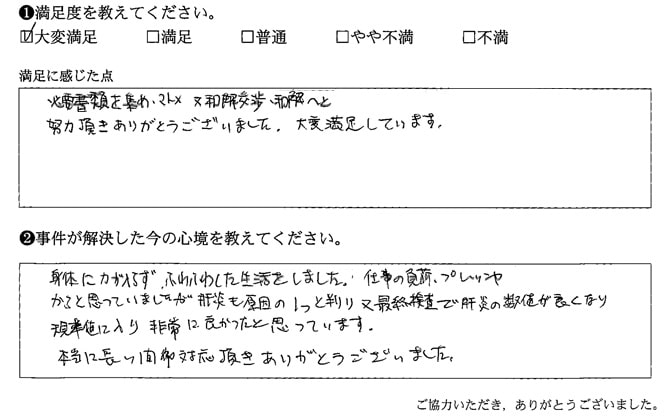 ❶満足度を教えてください。
☑大変満足 □満足 □普通 □やや不満 □不満
満足に感じた点
必要書類を集め、マトメ 又和解交渉、和解へと
努力頂きありがとうございました。大変満足しています。
❷事件が解決した今の心境を教えてください。
身体に力が入らず、ふわふわした生活をしました。仕事の負荷、プレッシャ
かなと思っていましたが肝炎も原因の1つと判り 又最終検査で肝炎の数値が良くなり
基準値に入り 非常に良かったと思っています。
本当に長い間御対応頂きありがとうございました。
ご協力いただき，ありがとうございました。